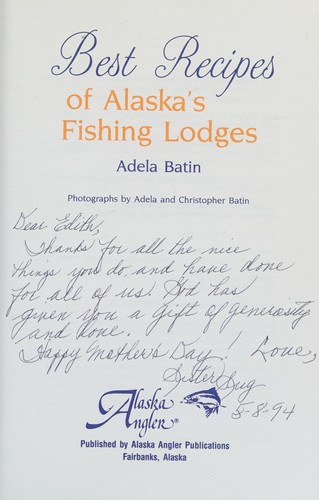 Best Recipes
of Alaska's
Fishing Lodges
Adela Batin
Photographs by Adela and Christopher Batin
Dear Edith,
Thanks for all the nice
things you do and have done
for all of us. God has
given you a gift of generosity
and love.
Happy Mother's Day! Love,
Sister
5-8-94
Alaska
Angler®
Published by Alaska Angler Publications
Fairbanks, Alaska